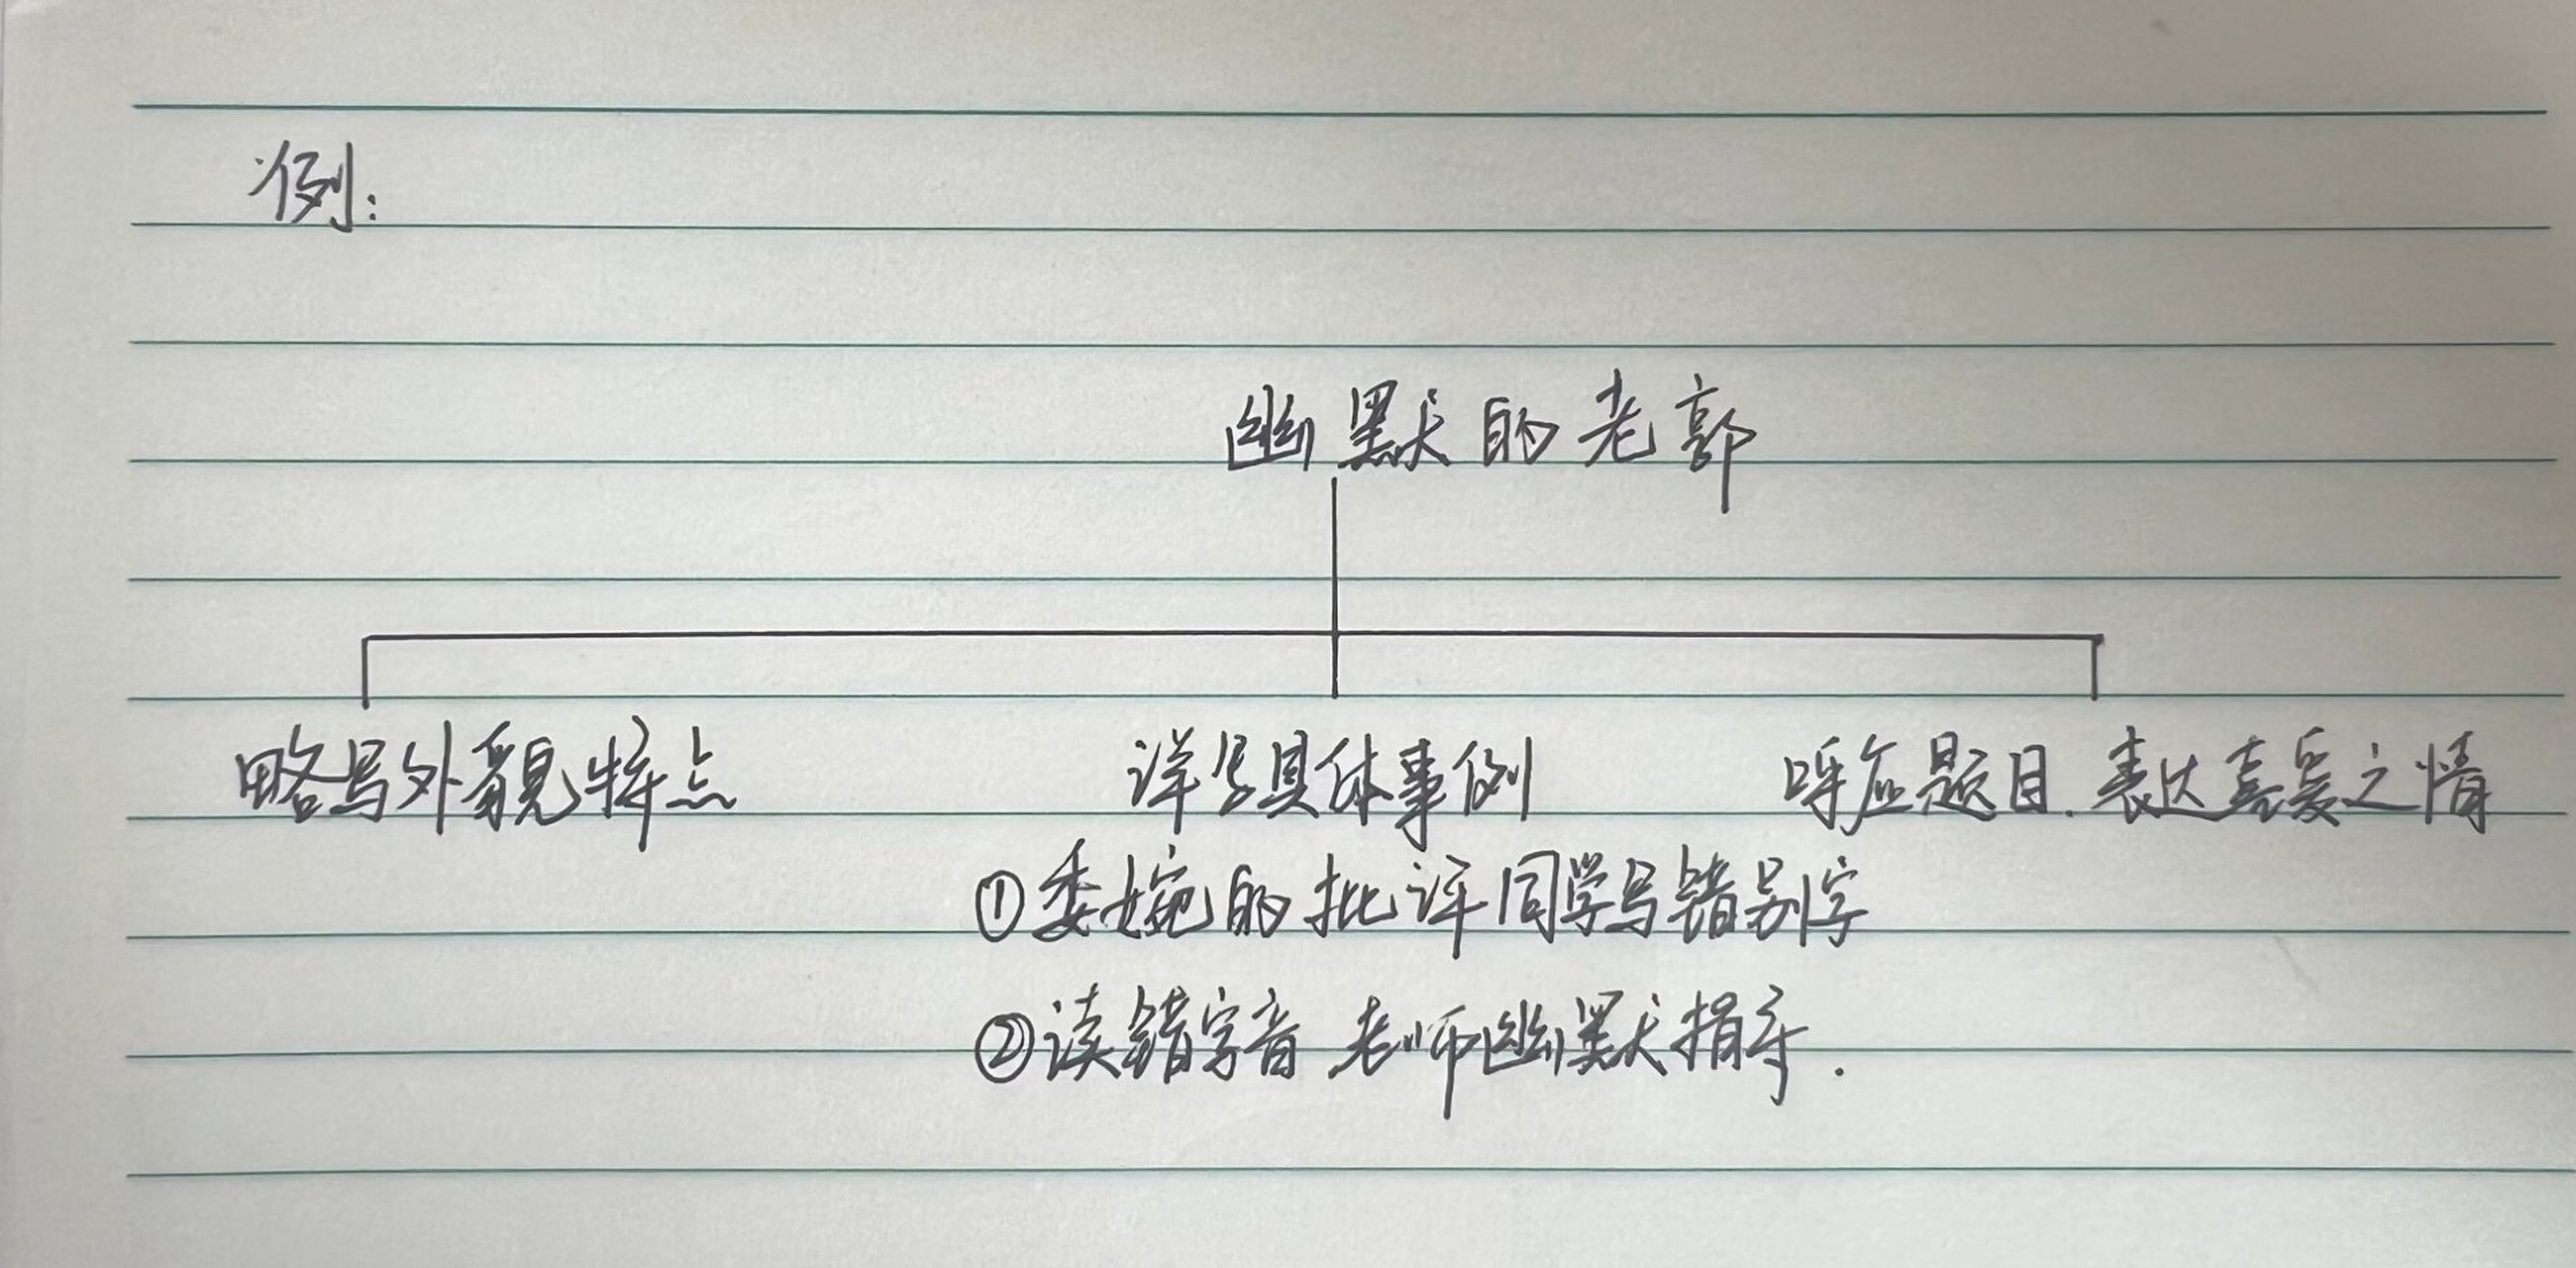 例:
幽默的老郭
略写外貌特点
详写具体事例
呼应题目.表达喜爱之情
①委婉的批评同学写错别字
②读错字音 老师幽默指导.